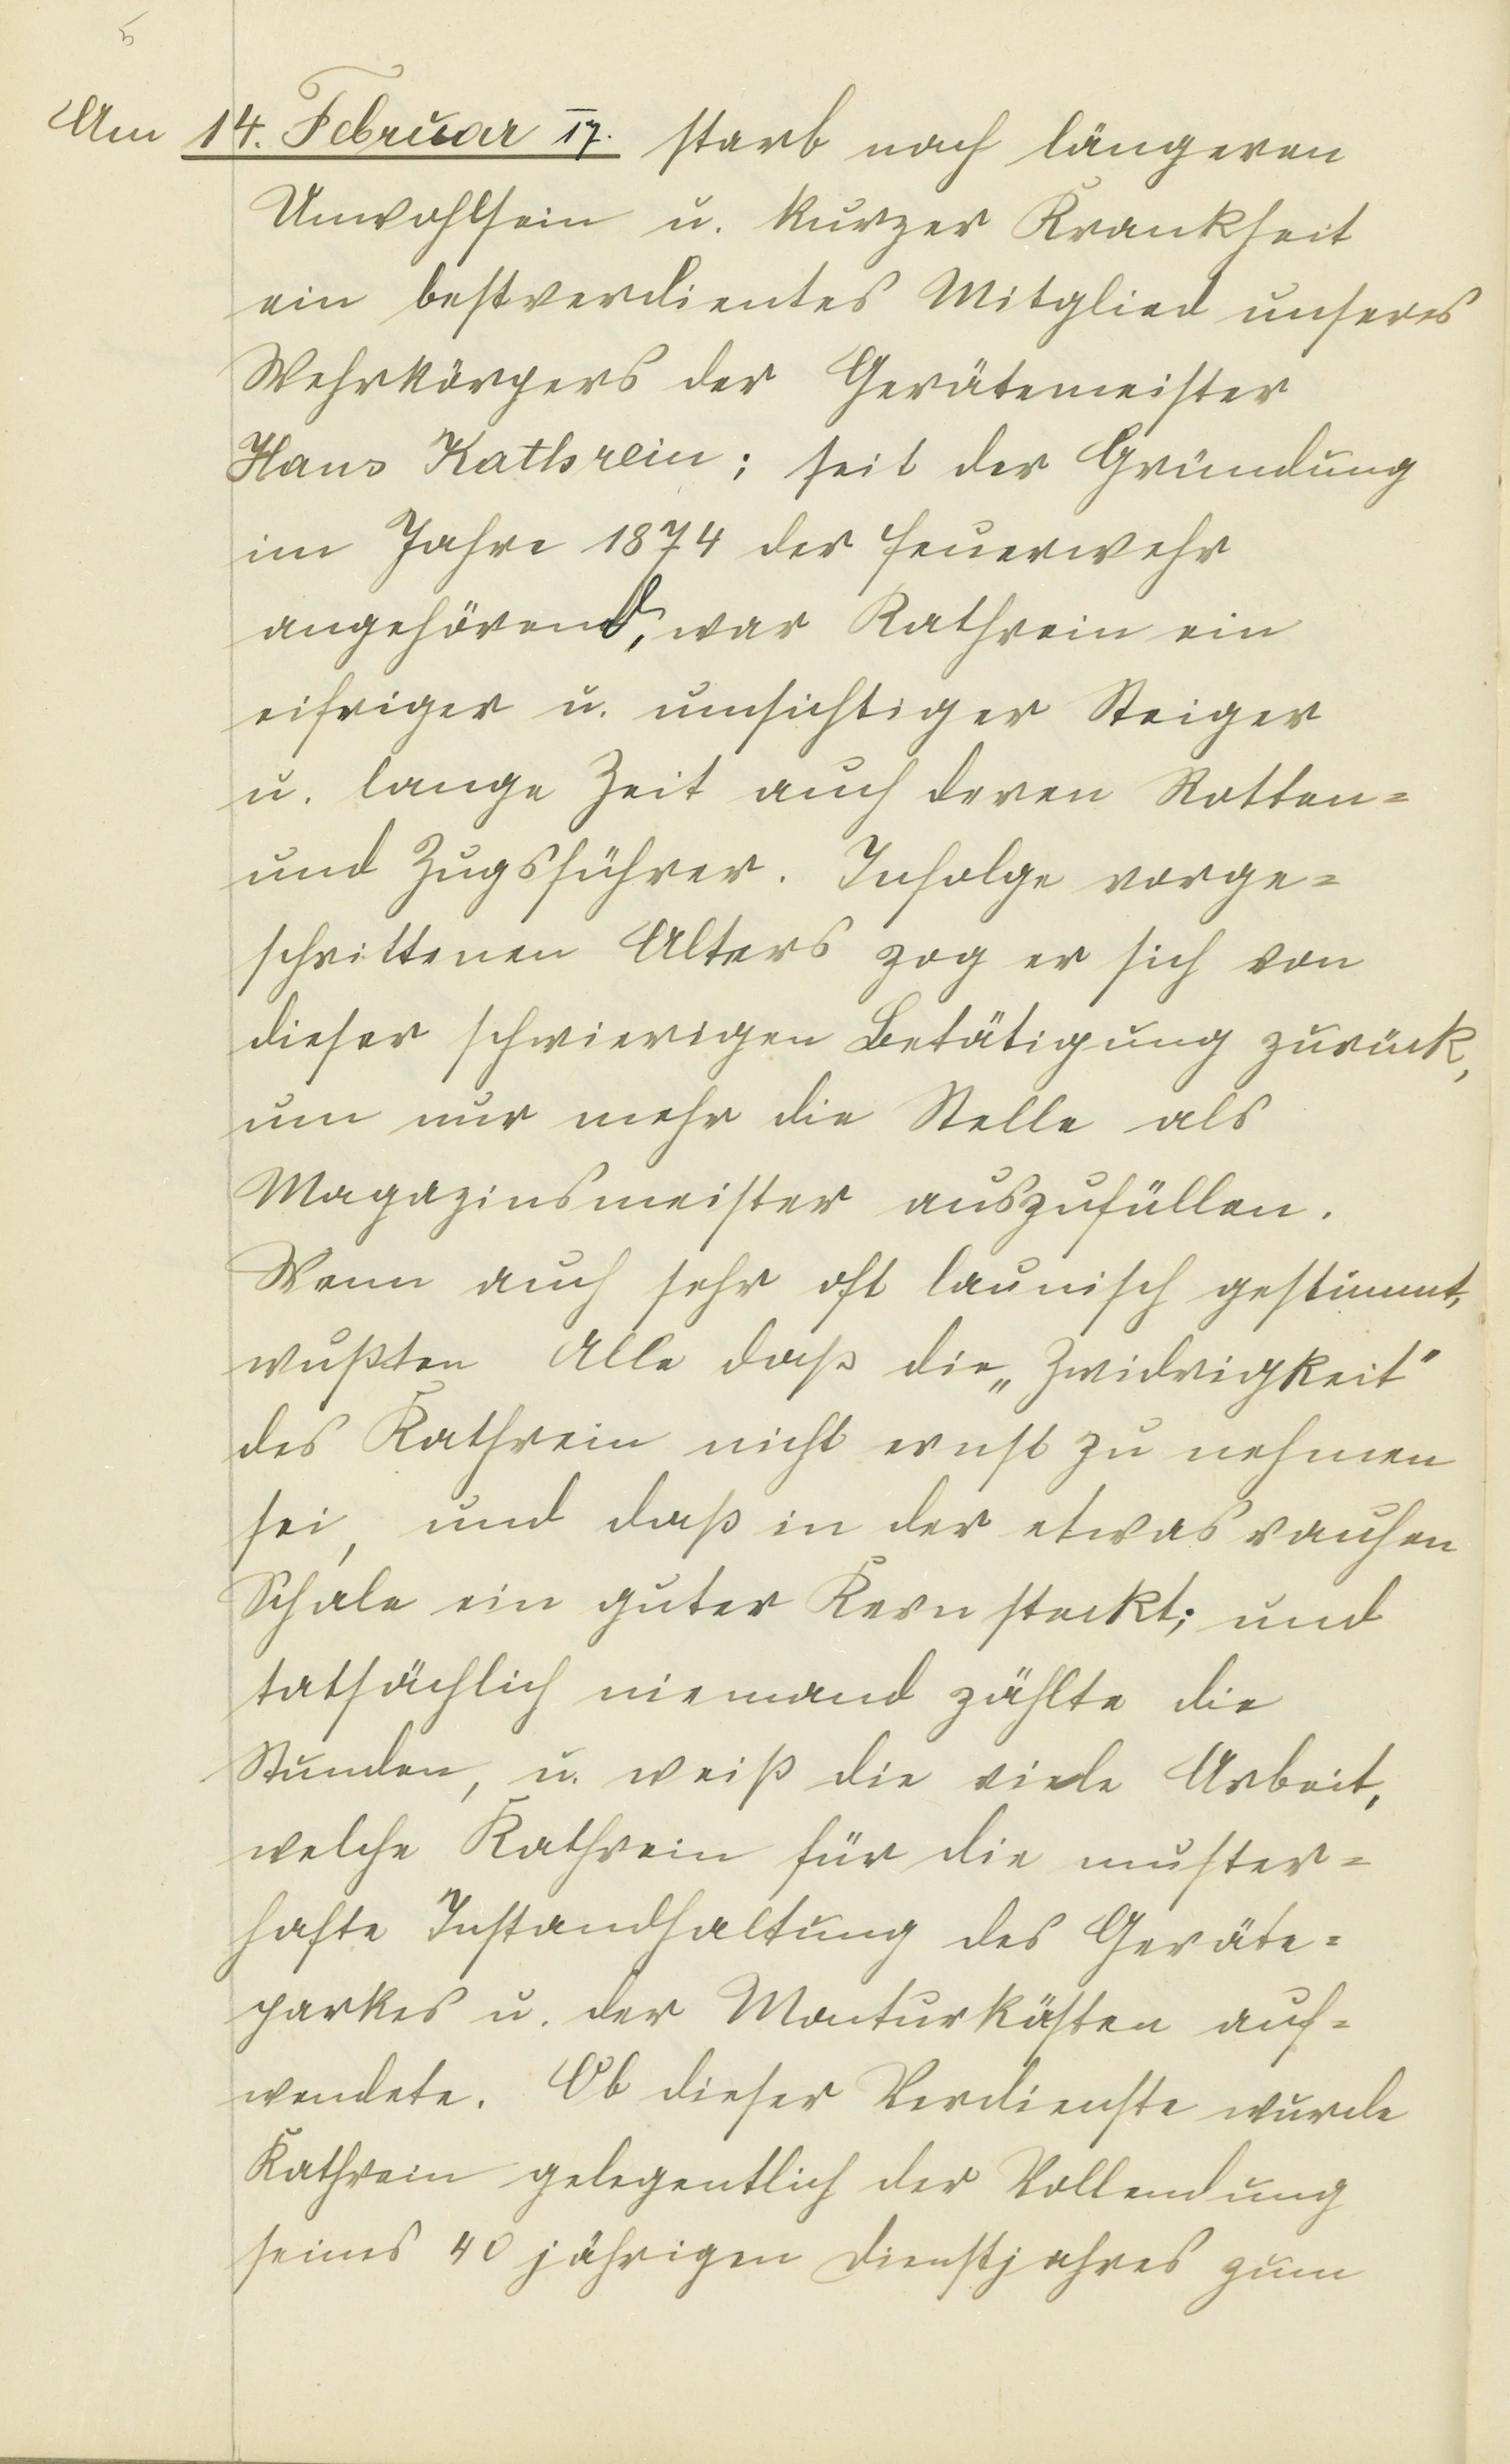 5
Am 14. Februar 17. starb nach längeren
Unwohlsein u. kurzer Krankheit
ein bestverdientes Mitglied unseres
Wehrkörpers der Gerätemeister
Hans Kathrein; seit der Gründung
im Jahre 1874 der Feuerwehr
angehörend, war Kathrein ein
eifriger u. umsichtiger Steiger
u. lange Zeit auch deren Rotten=
und Zugsführer. Infolge vorge=
schrittenen Alters zog er sich von
dieser schwierigen Betätigung zurück,
um nur mehr die Stelle als
Magazinsmeister auszufüllen.
Wenn auch sehr oft launisch gestimmt,
wußten Alle daß die „Zwidrigkeit"
des Kathrein nicht ernst zu nehmen
sei, und daß in der etwas rauhen
Schale ein guter Kern steckt; und
tatsächlich niemand zählte die
Stunden, u. weiß die viele Arbeit,
welche Kathrein für die muster=
hafte Instandhaltung des Geräte=
parkes u. der Monturkästen auf=
wendete. Ob dieser Verdienste wurde
Kathrein gelegentlich der Vollendung
seines 40 jährigen Dienstjahres zum